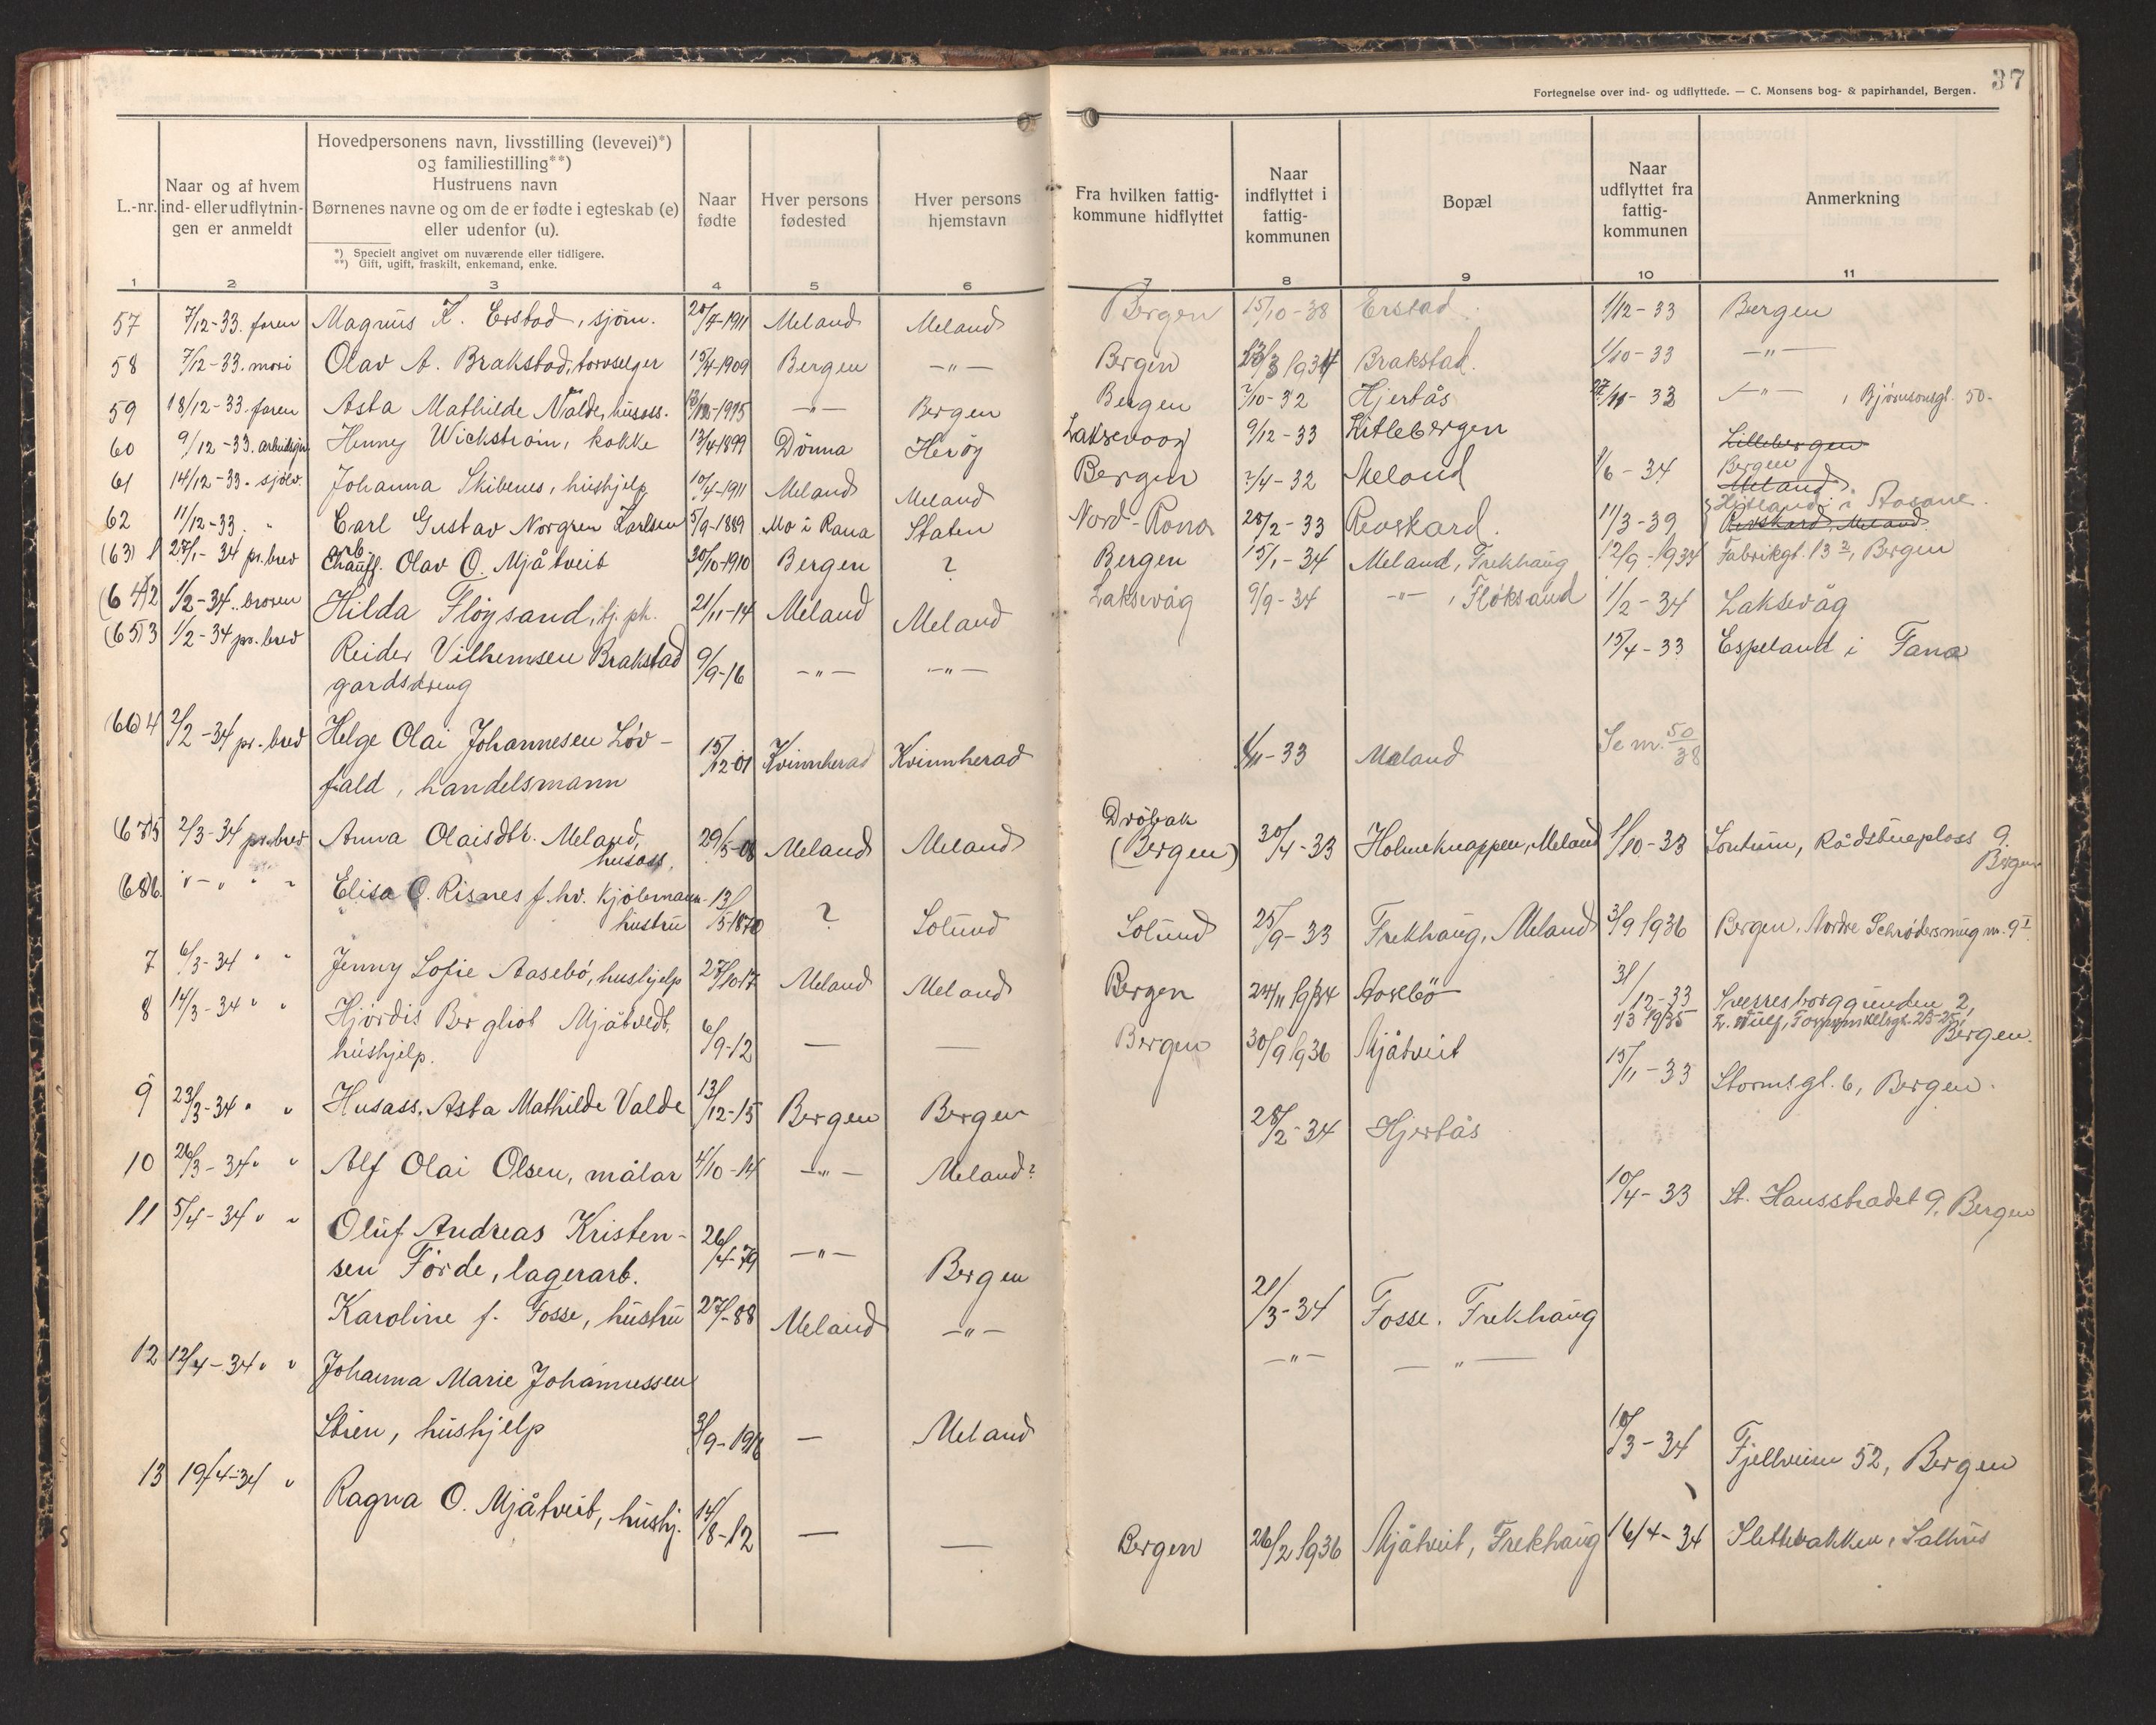 37
Fortegnelse over ind- og udflyttede. — C. Monsens bog- & papirhandel, Bergen.
L.-nr.
Naar og af hvem ind- eller udflytnin- gen er anmeldt
Hovedpersonens navn, livsstilling (levevei)*)
og familiestilling**)
Hustruens navn
Børnenes navne og om de er fødte i egteskab (e)
eller udenfor (u).
*) Specielt angivet om nuværende eller tidligere.
**) Gift, ugift, fraskilt, enkemand, enke.
Naar fødte
Hver persons fødested
Hver persons hjemstavn
Fra hvilken fattig- kommune hidflyttet
Naar indflyttet i fattig- kommunen
Bopæl
Naar udflyttet fra fattig- kommunen
Anmerkning
1 2 3 4 5 6 7 8 9 10 11
57 7/12-33. faren Magnus K. Erstad, sjöm. /7-1911 Meland Meland Bergen 15/10-38 Erstad 1/12-33 Bergen
58 7/12-33. mori Olav A. Brakstad, torvselger 15/4-1909 Bergen —"— Bergen /3 1934 Brakstad. 1/10-33 —"—
59 18/12-33. faren Asta Mathilde Valde, husass. —"— Bergen Bergen ?/10-32 Hjertås 27/11-33 —"—, Bjørnsonsgt. 50-
60 9/12-33. arbeidsgiv. Henny Wickström, kokke 13/4 1899 Dönna Heröy Laksevaag 9/12-33 Litlebergen Lillebergen
61 14/12-33. sjölv. Johanna Skibenes, hushjelp 10/4-1911 Meland Meland Bergen ?/4-32 Meland 1/6-34 Bergen Meland
62 11/12-33. " Carl Gustav Norgren Karlsen 5/9-1889 Mo i Rana Staten Nord-Rana 28/2-33 Revskard. 11/3-39 Hjetland i Aasane. Revskard, Meland.
(63) 1 27/1-34 pr. brev Chauff. arb. Olav O. Mjåtveit 30/10-1910 Bergen ? Bergen 15/1-34 Meland, Frekhaug 12/9-1934 Fabrikgt. 13 2, Bergen
(64) 2 1/2-34. broren Hilda Flöysand, tj.pk. 21/11-14 Meland Meland Laksevåg 9/9-34 —"—, Fløksand 1/2-34 Laksevåg
(65) 3 1/2-34 pr. brev Reider Vilhemsen Brakstad 9/9-16 —"— —"— 15/4-33 Espeland i Fana
gardsdreng
(66) 4 2/2-34 pr. brev Helge Olai Johannesen Löv-
fald, handelsmann 15/12-01 Kvinnherad Kvinnherad 1/11-33 Meland Se nr. 50/38
(67) 5 2/3-34 pr. brev Anna Olaisdtr. Meland, husass. 29/5-08 Meland Meland Dröbak (Bergen) 30/4-33 Holmeknappen, Meland 1/10-33 Lontum, Rådstueplass 9. Bergen
(68) 6. "-" " " Elisa O. Risnes f. hv. kjöbmann- hustru 13/5 1870 ? Solund Solund 25/9-33 Frekhaug, Meland 3/9 1936 Bergen, Nordre Schrødersmug nr. 9 I
7 6/3-34 " " Jenny Sofie Aasebö, hushjelp 27/10-17 Meland Meland Bergen 24/11 1934 Aasebö 31/12-33 Sverresborggrunden 2,
1/3 1935 Bergen.
8 14/3-34 " " Hjördis Bergliot Mjåtvedt, hushjelp. 6/9-12 — — Bergen 30/9 1936 Mjåtveit 15/11-33 Stormsgt. 6, Bergen.
9 23/3-34 " " Husass. Asta Mathilde Valde 13/12-15 Bergen Bergen 28/2-34 Hjertås
10 26/3-34 " " Alf Olai Olsen, målar 4/10-14 —"— Meland? 10/4-33 St. Hansstradet 9, Bergen
11 5/4-34 " " Oluf Andreas Kristen-
sen Förde, lagerarb. 26/4-79 —"— Bergen 21/3-34 Fosse. Frekhaug
Karoline f. Fosse, hustru 27/-88 Meland —"— —"— —"—
12 12/4-34 " " Johanna Marie Johannessen
Stien, hushjelp 3/9-1916 — Meland 10/3-34 Fjellveien 52, Bergen
13 19/4-34 " Ragna O. Mjåtveit, hushj. 14/8-12 — — Bergen 26/2 1936 Mjåtveit, Frekhaug 16/4-34 Slettebakken, Salhus